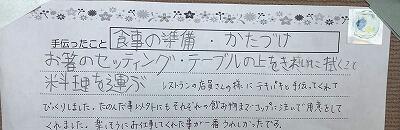 手伝ったこと 食事の準備・かたづけ
お箸のセッティング・テーブルの上をきれいに拭くこと
料理を運ぶ レストランの店員さんの様にテキパキと手伝ってくれて
びっくりしました。たのんだ事以外にもそれぞれの飲み物までコップに注いで用意をして
くれました。楽しそうにお仕事してくれた事が一番うれしかったです。